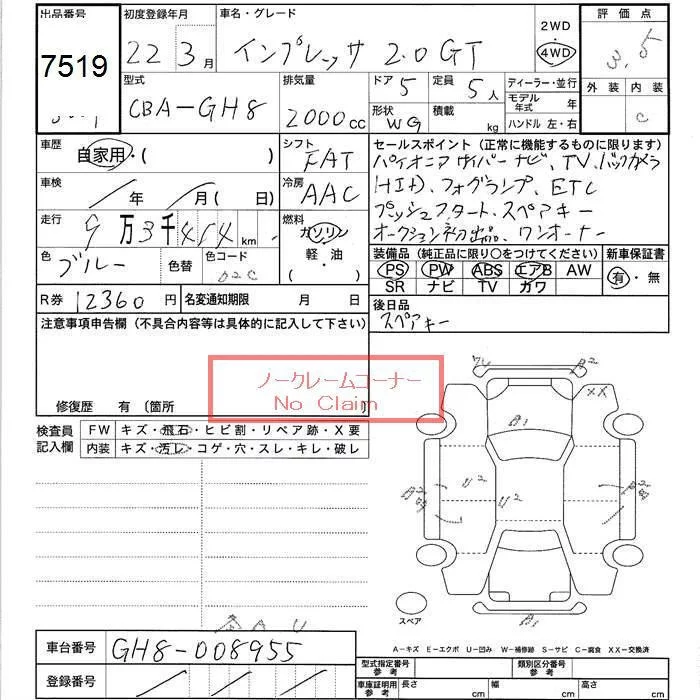 出品番号 初度登録年月 車名・グレード 2WD 評価点
7519 22 3月 インプレッサ 2.0GT 4WD 3.5
型式 排気量 ドア 5 定員 5人 ディーラー・並行 外装 内装
CBA-GH8 2000cc 形状 WG 積載 kg モデル年式 年 C
ハンドル 左・右
車歴 自家用・( ) シフト FAT セールスポイント (正常に機能するものに限ります)
パイオニア サイバーナビ、TV、バックカメラ
車検 年 月( 日) 冷房 AAC HID、フォグランプ、ETC
プッシュスタート、スペアキー
走行 9万3千414km 燃料 ガソリン・軽・油 ( ) オークション初出品、ワンオーナー
色 ブルー 色替 色コード 02C 装備品 (純正品に限り○をつけてください) 新車保証書
PS PW ABS エアB AW 有・無
SR ナビ TV カワ
R券 12360円 名変通知期限 月 日 後日品
スペアキー
注意事項申告欄 (不具合内容等は具体的に記入して下さい)
ノークレームコーナー
No Claim
修復歴 有 〔箇所 〕
検査員記入欄 FW キズ・飛石・ヒビ割・リペア跡・X要
内装 キズ・汚レ・コゲ・穴・スレ・キレ・破レ
B2
XX
B1
U2 U2
B2
B1
スペア
A-キズ E-エクボ U-凹み W-補修跡 S-サビ C-腐食 XX-交換済
車台番号 GH8-008955
型式指定番号 参考 類別区分番号 参考
登録番号
車庫証明用 参考 長さ cm 幅 cm 高さ cm